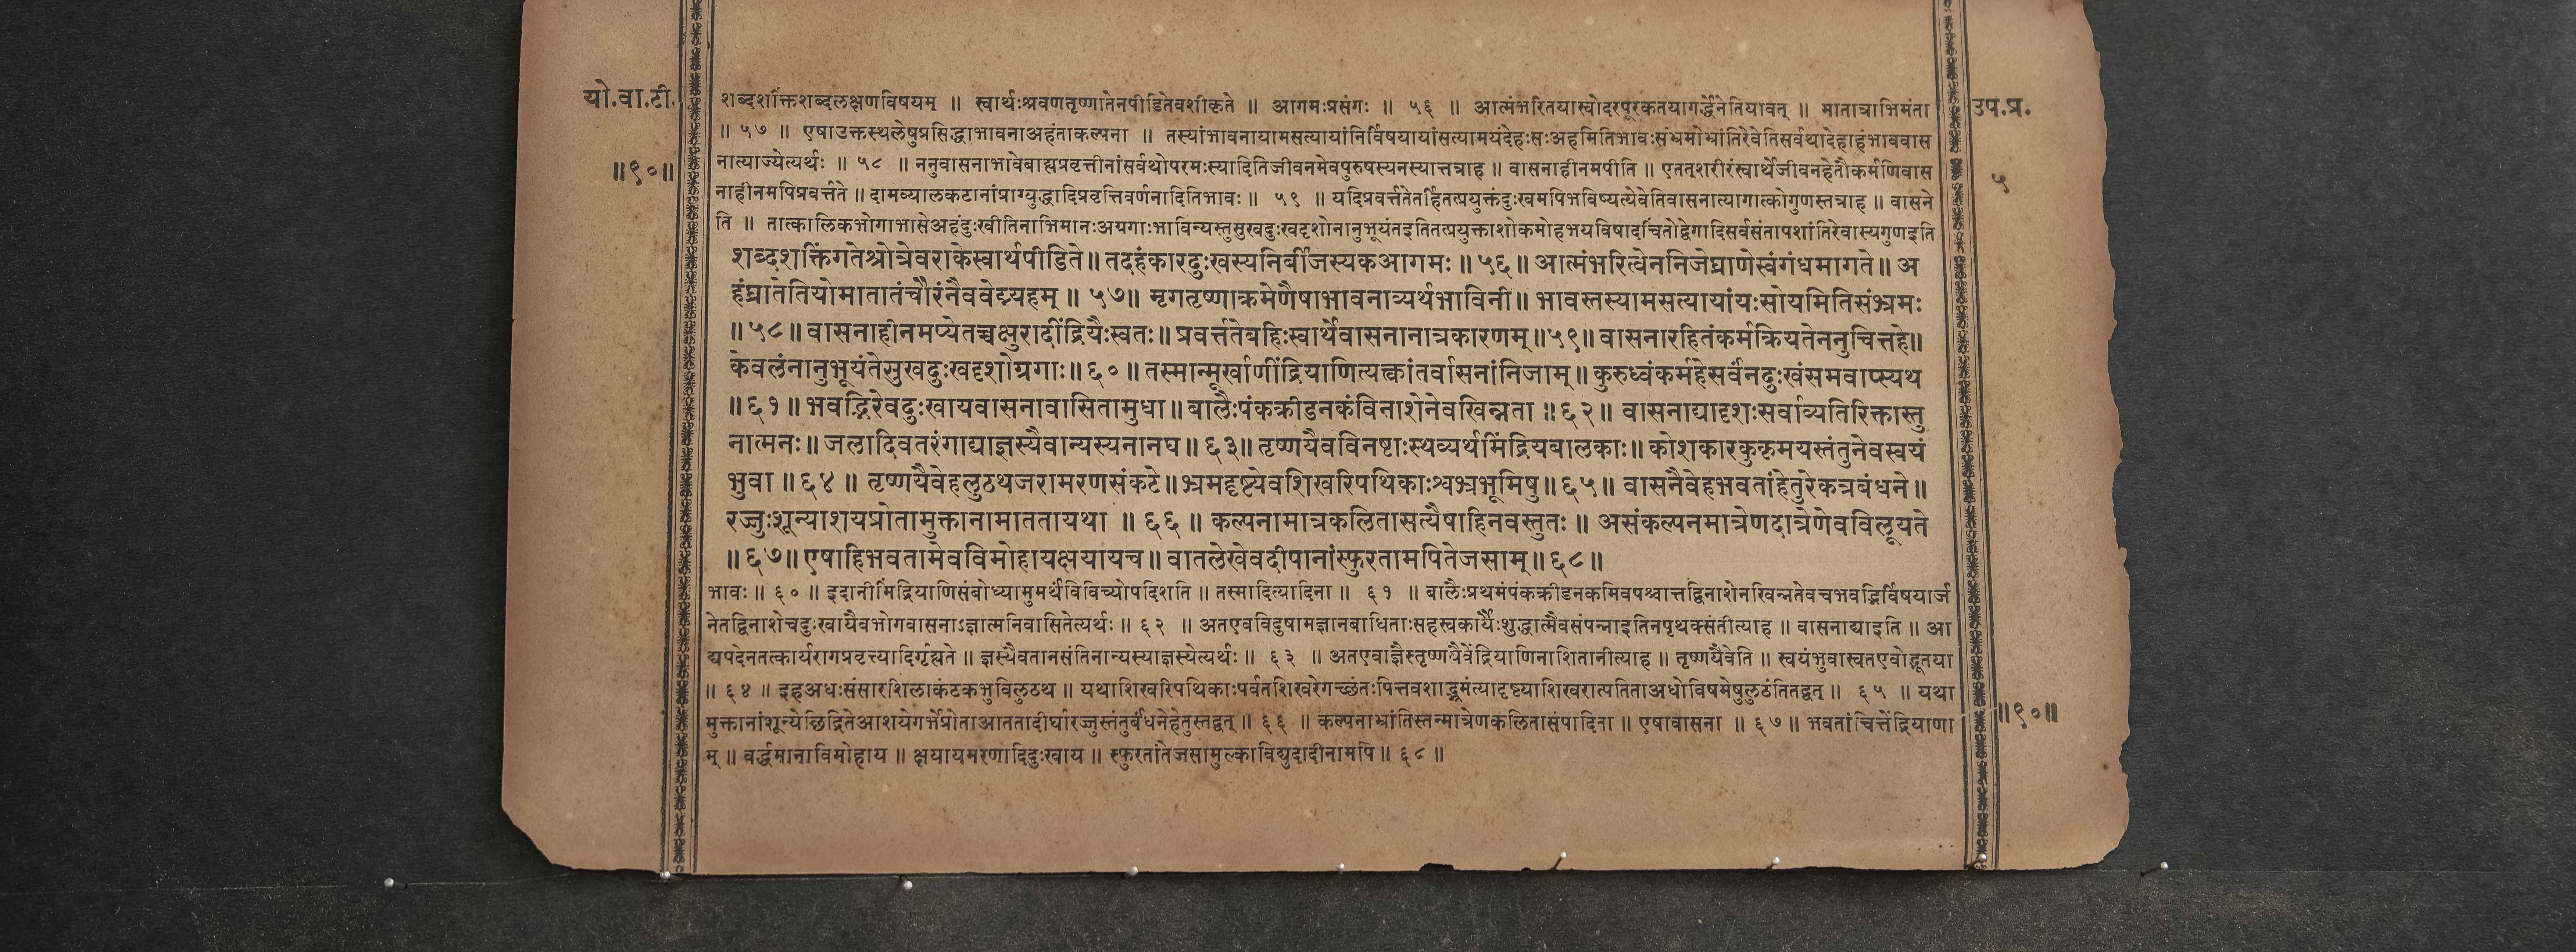 यो.वा.टी.
॥९०॥
शब्दशक्तिशब्दलक्षणविषयम् ॥ स्वार्थःश्रवणतृष्णातेनपीडितेवशीकृते ॥ आगमःप्रसंगः ॥ ५६ ॥ आत्मंभरितयास्वोदरपूरकतयागर्द्धेनेतियावत् ॥ मातात्राभिमंता
॥ ५७ ॥ एषाउक्तस्थलेषुप्रसिद्धाभावनाअहंताकल्पना ॥ तस्यांभावनायामसत्यायांनिर्विषयायांसत्यामयंदेहःसःअहमितिभावःसंभ्रमोभ्रांतिरेवेतिसर्वथादेहाहंभाववास
नात्याज्येत्यर्थः ॥ ५८ ॥ ननुवासनाभावेबाह्यप्रवृत्तीनांसर्वथोपरमःस्यादितिजीवनमेवपुरुषस्यनस्यात्तत्राह ॥ वासनाहीनमपीति ॥ एतत्शरीरंस्वार्थेजीवनहेतौकर्मणिवास
नाहीनमपिप्रवर्त्तते ॥ दामव्यालकटानांप्राग्युद्धादिप्रवृत्तिवर्णनादितिभावः ॥ ५९ ॥ यदिप्रवर्त्ततेतर्हितत्प्रयुक्तंदुःखमपिभविष्यत्येवेतिवासनात्यागात्कोगुणस्तत्राह ॥ वासने
ति ॥ तात्कालिकभोगाभासेअहंदुःखीतिनाभिमानःअग्रगाःभाविन्यस्तुसुखदुःखदृशोनानुभूयंतइतितत्प्रयुक्ताशोकमोहभयविषादचिंतोद्वेगादिसर्वसंतापशांतिरेवास्यगुणइति
शब्दशक्तिंगतेश्रोत्रेवराकेस्वार्थपीडिते॥ तदहंकारदुःखस्यनिर्बीजस्यकआगमः॥५६॥ आत्मंभरित्वेननिजेघ्राणेस्वंगंधमागते॥ अ
हंघ्रातेतियोमातातंचौरंनैववेद्म्यहम् ॥ ५७॥ मृगतृष्णाक्रमेणैषाभावनाव्यर्थभाविनी॥ भावस्तस्यामसत्यायांयःसोयमितिसंभ्रमः
॥५८॥ वासनाहीनमप्येतच्चक्षुरादींद्रियैःस्वतः॥ प्रवर्त्ततेबहिःस्वार्थेवासनानात्रकारणम्॥५९॥ वासनारहितंकर्मक्रियतेननुचित्तहे॥
केवलंनानुभूयंतेसुखदुःखदृशोग्रगाः॥६०॥ तस्मान्मूर्खाणींद्रियाणित्यक्त्वांतर्वासनांनिजाम्॥ कुरुध्वंकर्महेसर्वंनदुःखंसमवाप्स्यथ
॥६१॥ भवद्भिरेवदुःखायवासनावासितामुधा॥ बालैःपंकक्रीडनकंविनाशेनेवखिन्नता ॥६२॥ वासनाद्यादृशःसर्वाव्यतिरिक्तास्तु
नात्मनः॥ जलादिवतरंगाद्याज्ञस्यैवान्यस्यनानघ॥ ६३॥ तृष्णयैवविनष्टाःस्थव्यर्थमिंद्रियबालकाः॥ कोशकारकुकृमयस्तंतुनेवस्वयं
भुवा ॥६४॥ तृष्णयैवेहलुठथजरामरणसंकटे॥ भ्रमदृष्ट्येवशिखरिपथिकाःश्वभ्रभूमिषु॥६५॥ वासनैवेहभवतांहेतुरेकत्रबंधने॥
रज्जुःशून्याशयप्रोतामुक्तानामाततायथा ॥ ६६॥ कल्पनामात्रकलितासत्यैषाहिनवस्तुतः॥ असंकल्पनमात्रेणदात्रेणेवविलूयते
॥६७॥ एषाहिभवतामेवविमोहायक्षयायच॥ वातलेखेवदीपानांस्फुरतामपितेजसाम्॥६८॥
भावः ॥ ६० ॥ इदानीमिंद्रियाणिसंबोध्यामुमर्थंविविच्योपदिशति ॥ तस्मादित्यादिना ॥ ६१ ॥ बालैःप्रथमंपंकक्रीडनकमिवपश्चात्तद्विनाशेनखिन्नतेवचभवद्भिर्विषयार्ज
नेतद्विनाशेचदुःखायैवभोगवासनाऽज्ञात्मनिवासितेत्यर्थः ॥ ६२ ॥ अतएवविदुषामज्ञानबाधिताःसहस्वकार्यैःशुद्धात्मैवसंपन्नाइतिनपृथक्संतीत्याह ॥ वासनाद्याइति ॥ आ
द्यपदेनतत्कार्यरागप्रवृत्त्यादिर्गृह्यते ॥ ज्ञस्यैवतानसंतिनान्यस्याज्ञस्येत्यर्थः ॥ ६३ ॥ अतएवाज्ञैस्तृष्णयैवेंद्रियाणिनाशितानीत्याह ॥ तृष्णयैवेति ॥ स्वयंभुवास्वतएवोद्भूतया
॥ ६४ ॥ इहअधःसंसारशिलाकंटकभुविलुठथ ॥ यथाशिखरिपथिकाःपर्वतशिखरेगच्छंतःपित्तवशाद्भ्रमंत्यादृष्ट्याशिखरात्पतिताअधोविषमेषुलुठंतितद्वत् ॥ ६५ ॥ यथा
मुक्तानांशून्येछिद्रितेआशयेगर्भेप्रोताआततादीर्घारज्जुस्तंतुर्बंधनेहेतुस्तद्वत् ॥ ६६ ॥ कल्पनाभ्रांतिस्तन्मात्रेणकलितासंपादिता ॥ एषावासना ॥ ६७ ॥ भवतांचित्तेंद्रियाणा
म् ॥ वर्द्धमानाविमोहाय ॥ क्षयायमरणादिदुःखाय ॥ स्फुरतांतेजसामुल्काविद्युदादीनामपि ॥ ६८ ॥
उप.प्र.
५
॥९०॥